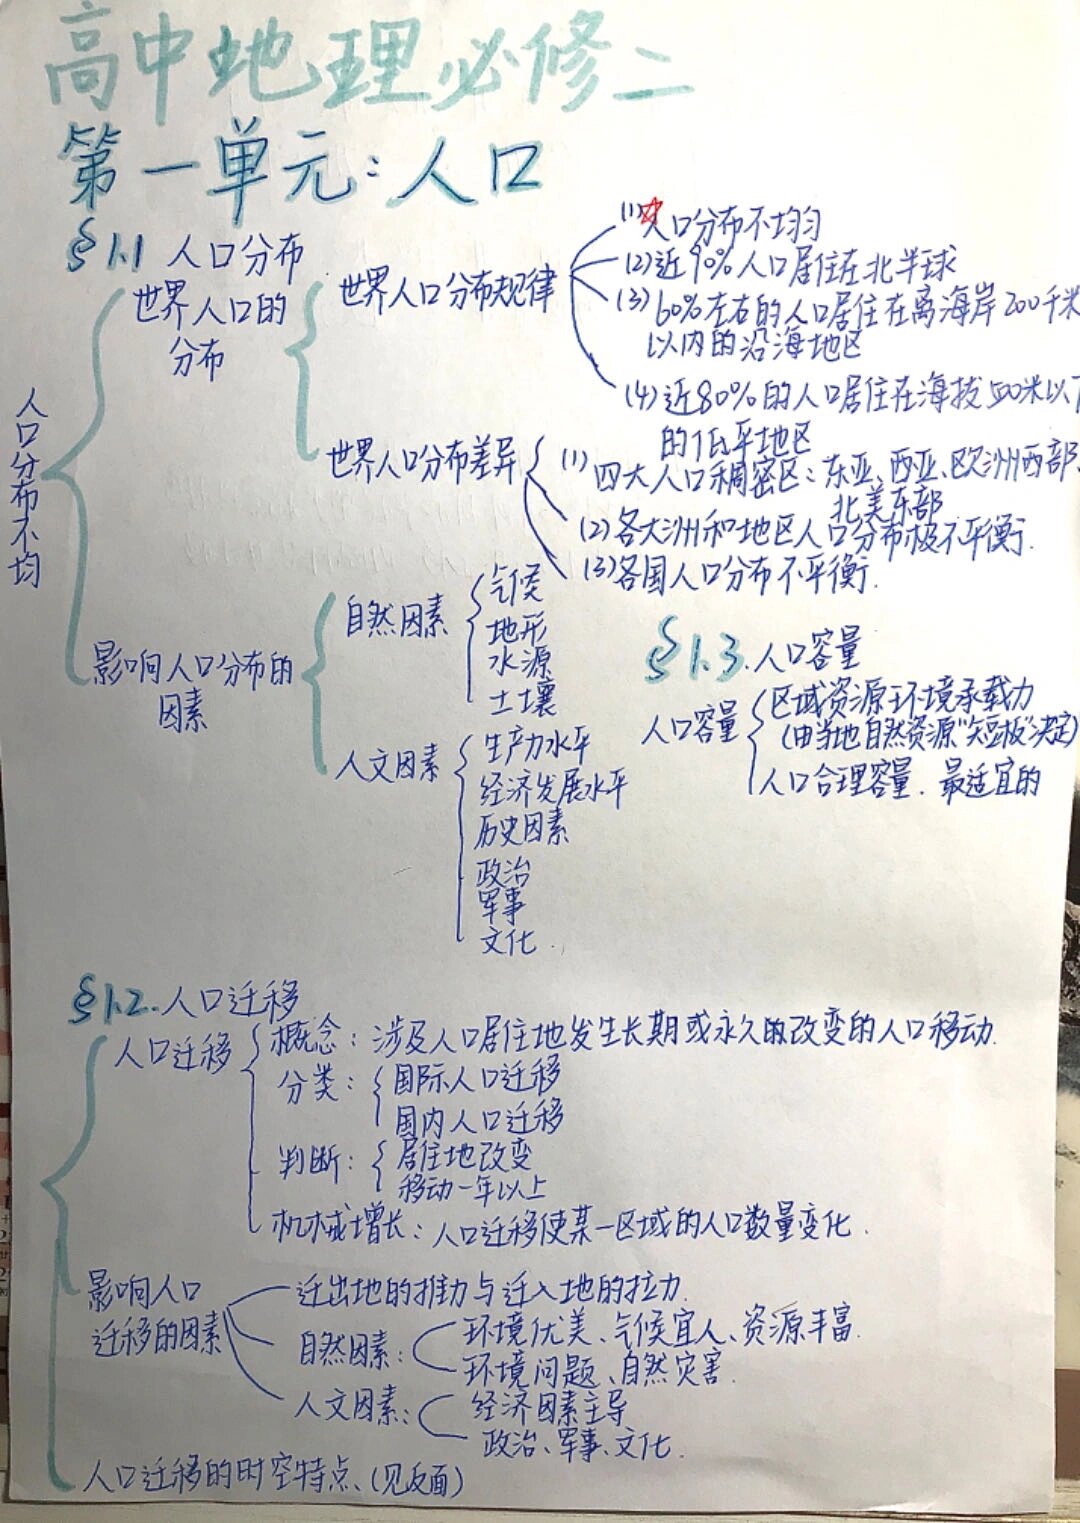 高中地理必修二
第一单元：人口
§1.1 人口分布
人口分布不均
世界人口的
分布
世界人口分布规律
(1)人口分布不均匀
(2)近90%人口居住在北半球
(3)60%左右的人口居住在离海岸200千米
以内的沿海地区
(4)近80%的人口居住在海拔500米以下
的低平地区
世界人口分布差异
(1)四大人口稠密区：东亚、西亚、欧洲西部、
北美东部
(2)各大洲和地区人口分布极不平衡.
(3)各国人口分布不平衡.
影响人口分布的
因素
自然因素
气候
地形
水源
土壤
人文因素
生产力水平
经济发展水平
历史因素
政治
军事
文化.
§1.3.人口容量
人口容量
区域资源环境承载力
(由当地自然资源"短板"决定)
人口合理容量.最适宜的
§1.2.人口迁移
人口迁移
概念：涉及人口居住地发生长期或永久的改变的人口移动.
分类：
国际人口迁移
国内人口迁移
判断：
居住地改变
移动一年以上
机械增长：人口迁移使某一区域的人口数量变化.
影响人口
迁移的因素
迁出地的推力与迁入地的拉力.
自然因素：
环境优美、气候宜人、资源丰富.
环境问题、自然灾害.
人文因素：
经济因素主导
政治、军事、文化.
人口迁移的时空特点、(见反面)